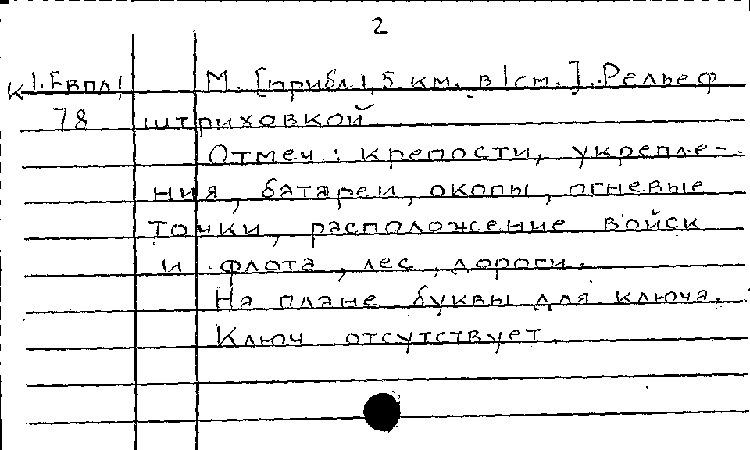 2
К 1. Евпл1 М. [прибл. 1,5 км. в 1 см.]. Рельеф
78 штриховкой
Отмеч: крепости, укрепле-
ния, батареи, окопы, огневые
точки, расположение войск
и флота, лес, дороги.
На плане буквы для ключа.
Ключ отсутствует.